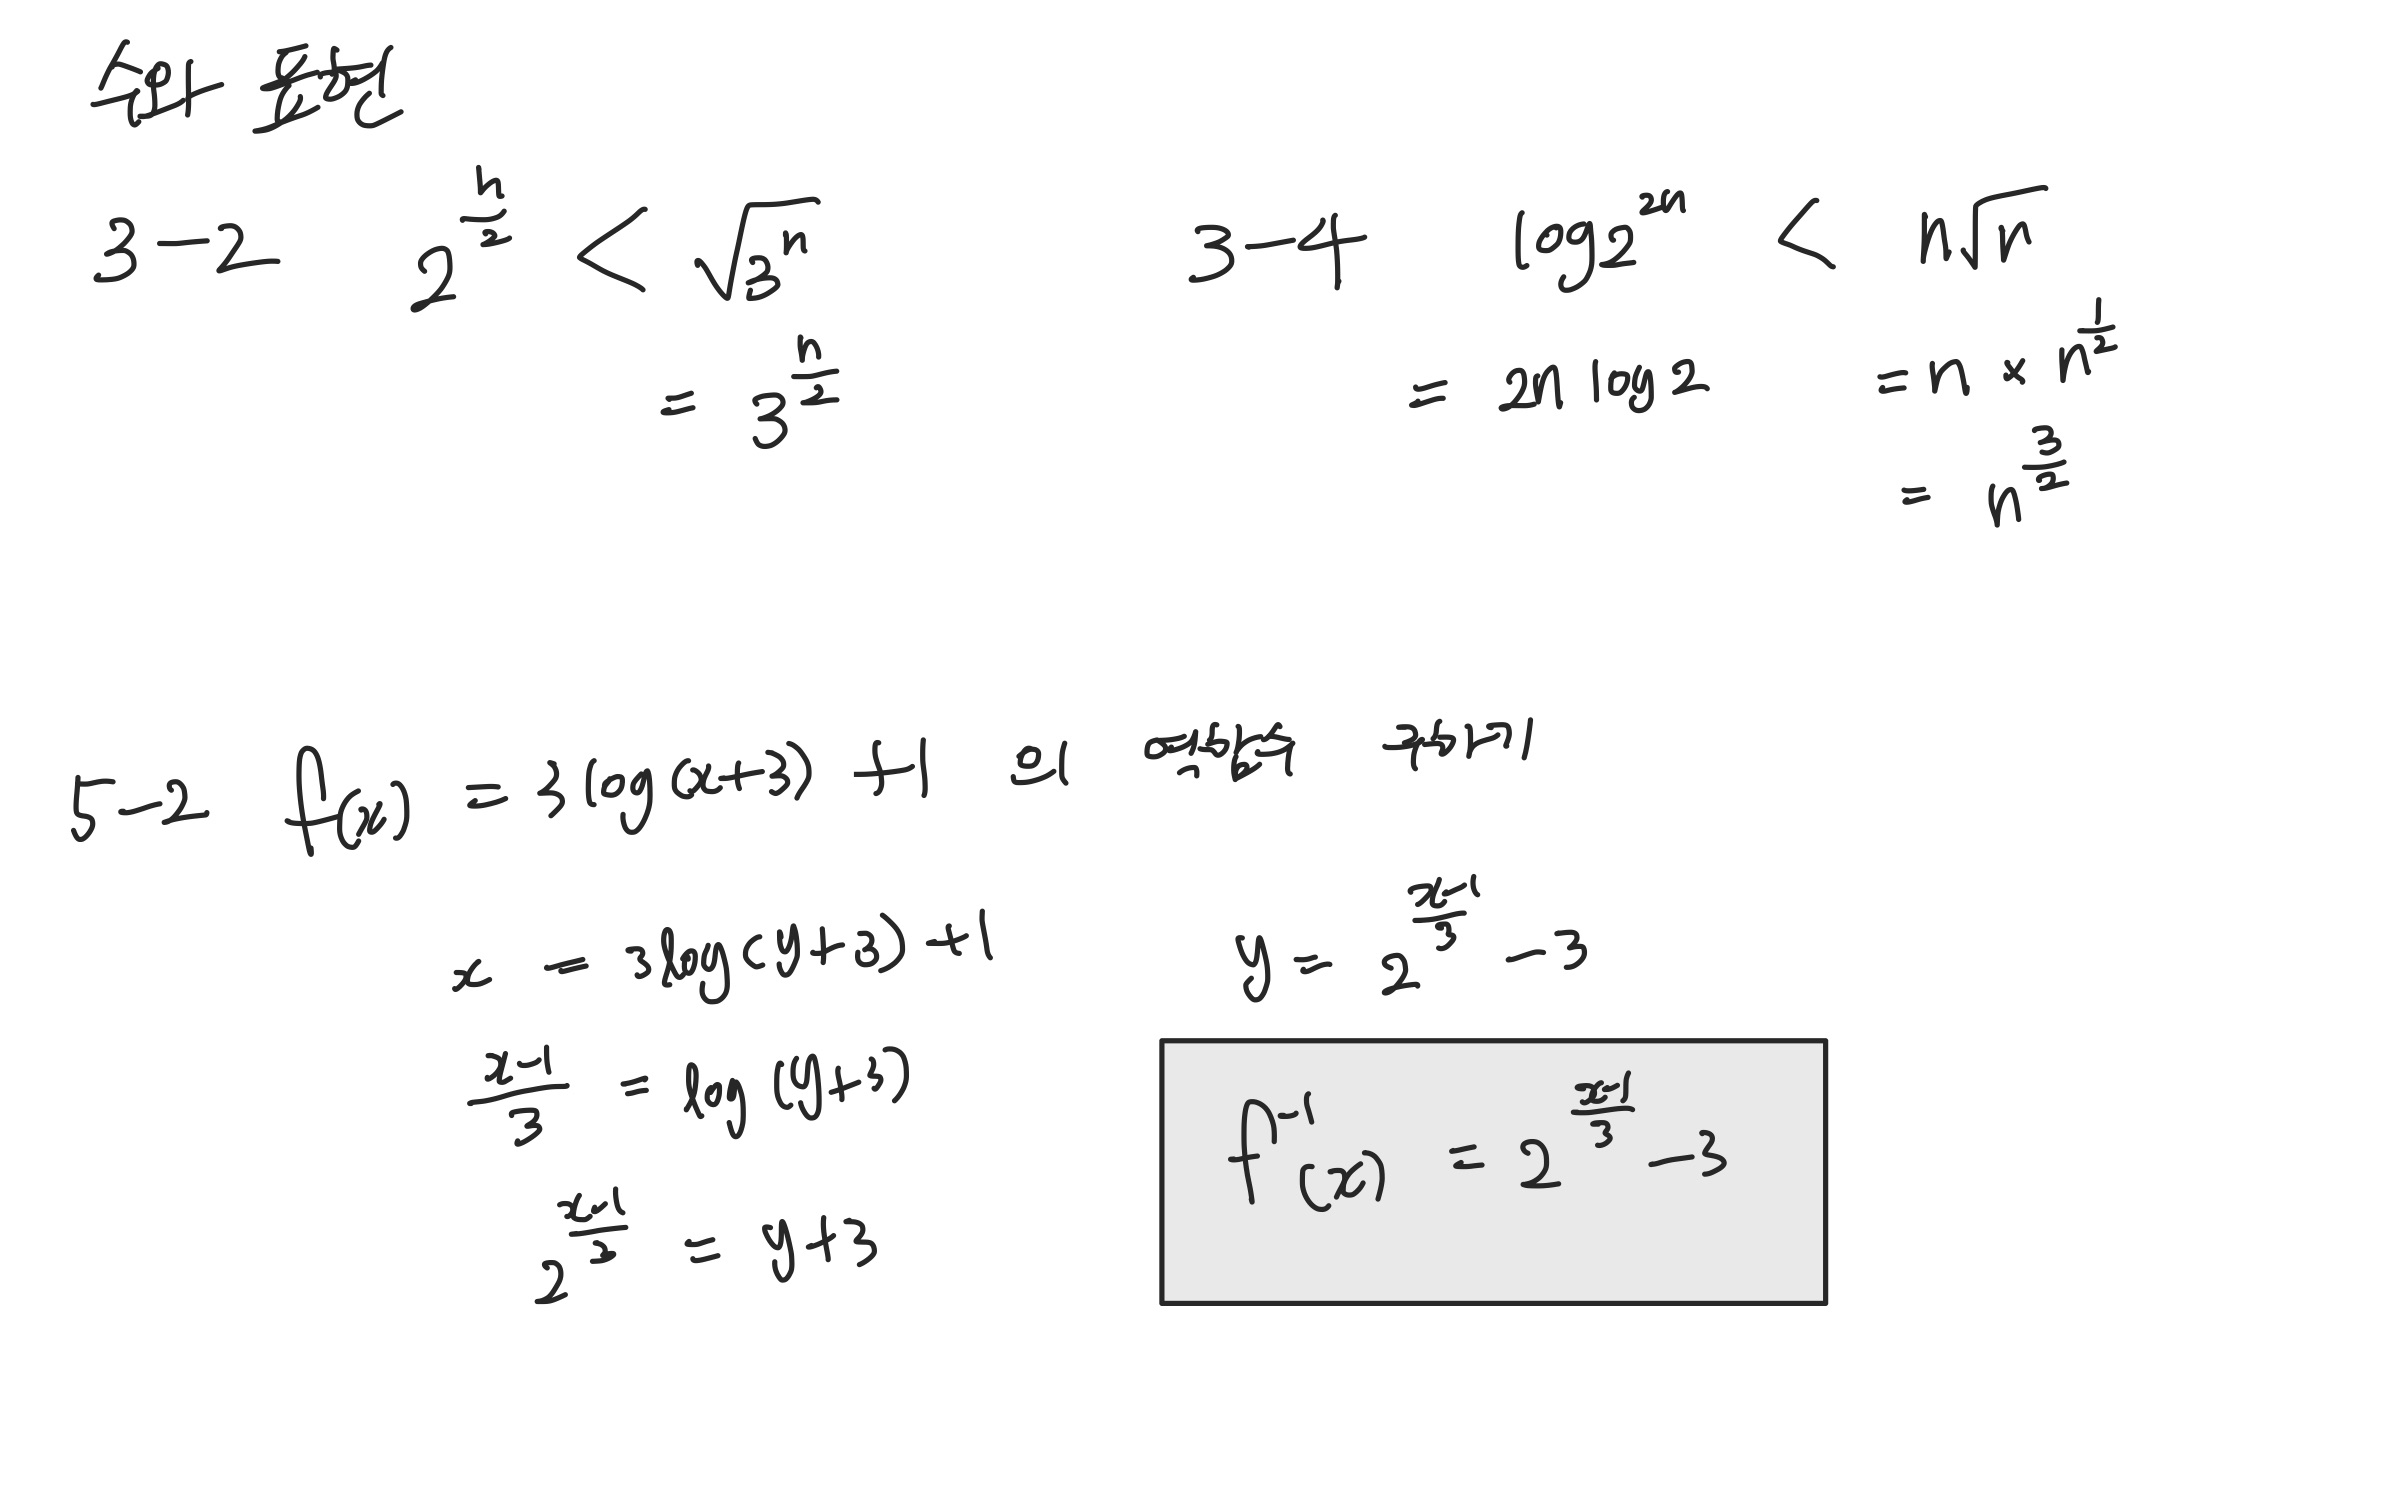 수학 튜터링
3-2 2^(n/2) < √(3^n)
= 3^(n/2)
3-4 log2^(2n) < n√n
= 2n log2 = n × n^(1/2)
= n^(3/2)
5-2 f(x) = 3log(x+3) +1 의 역함수 구하기
x = 3log(y+3)+1
(x-1)/3 = log(y+3)
2^((x-1)/3) = y+3
y = 2^((x-1)/3) -3
f^-1(x) = 2^((x-1)/3) -3